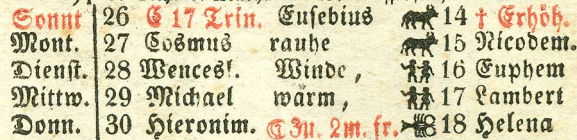 Sonnt 26 G 17 Trin. Eusebius 14 † Erhöh.
Mont. 27 Cosmus rauhe 15 Nicodem.
Dienst. 28 Wencesl. Winde, 16 Euphem
Mittw. 29 Michael wärm, 17 Lambert
Donn. 30 Hieronim. 3u. 2m. fr. 18 Helena